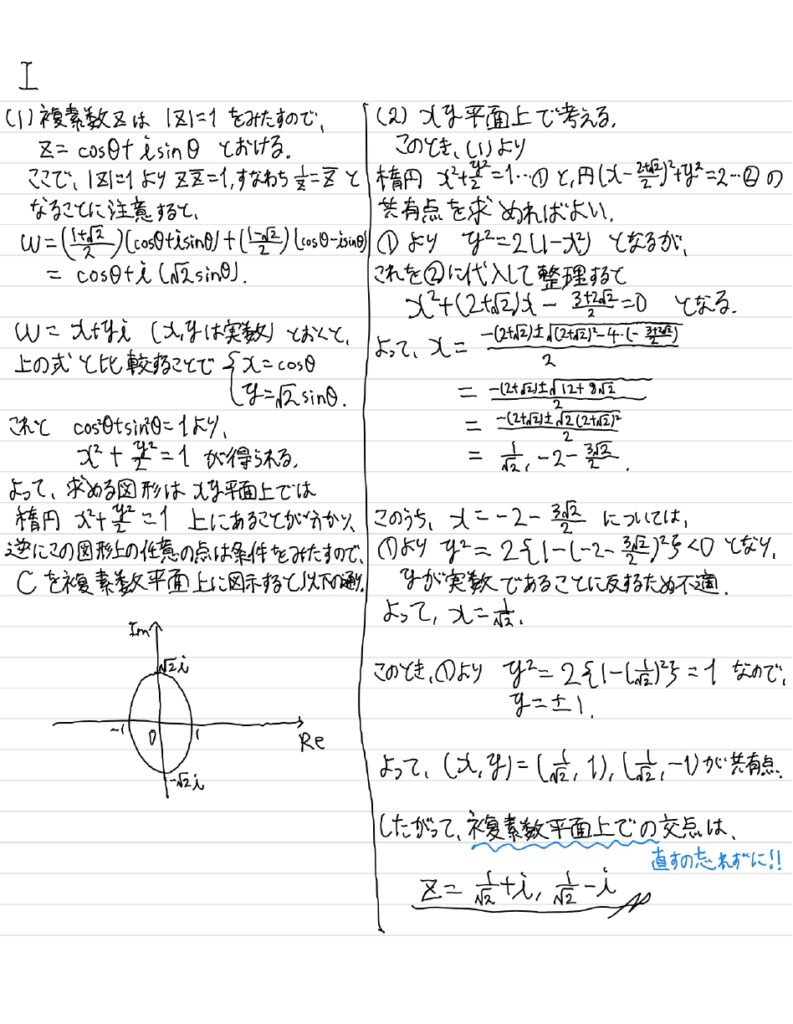 I
(1) 複素数zは |z|=1 をみたすので、
z = cosθ+isinθ とおける。
ここで、|z|=1 より z z̅=1, すなわち 1/z=z̅ と
なることに注意すると、
w=((1+√2)/2)(cosθ+isinθ)+((1-√2)/2)(cosθ-isinθ)
= cosθ+i(√2sinθ).
w=x+yi (x,yは実数) とおくと、
上の式と比較することで { x=cosθ
y=√2sinθ.
これと cos²θ+sin²θ=1より、
x²+y²/2=1 が得られる。
よって、求める図形は xy平面上では
楕円 x²+y²/2=1 上にあることが分かり、
逆にこの図形上の任意の点は条件をみたすので、
Cを複素数平面上に図示すると以下の通り。
Im
√2i
-1
0
1
Re
-√2i
(2) xy平面上で考える。
このとき、(1)より
楕円 x²+y²/2=1…① と、円(x-(2+√2)/2)²+y²=2…② の
共有点を求めればよい。
①より y²=2(1-x²) となるが、
これを②に代入して整理すると
x²+(2+√2)x-(3+2√2)/2=0 となる。
よって、x=(-(2+√2)±√((2+√2)²-4・(-(3+2√2)/2)))/2
=(-(2+√2)±√(12+8√2))/2
=(-(2+√2)±√(2(2+√2)²))/2
=1/√2, -2-3√2/2.
このうち、x=-2-3√2/2 については、
①より y²=2{1-(-2-3√2/2)²}<0 となり、
yが実数であることに反するため不適.
よって、x=1/√2.
このとき、①より y²=2{1-(1/√2)²}=1 なので、
y=±1.
よって、(x,y)=(1/√2,1),(1/√2,-1)が共有点.
したがって、複素数平面上での交点は、
直すの忘れずに!!
z=1/√2+i, 1/√2-i